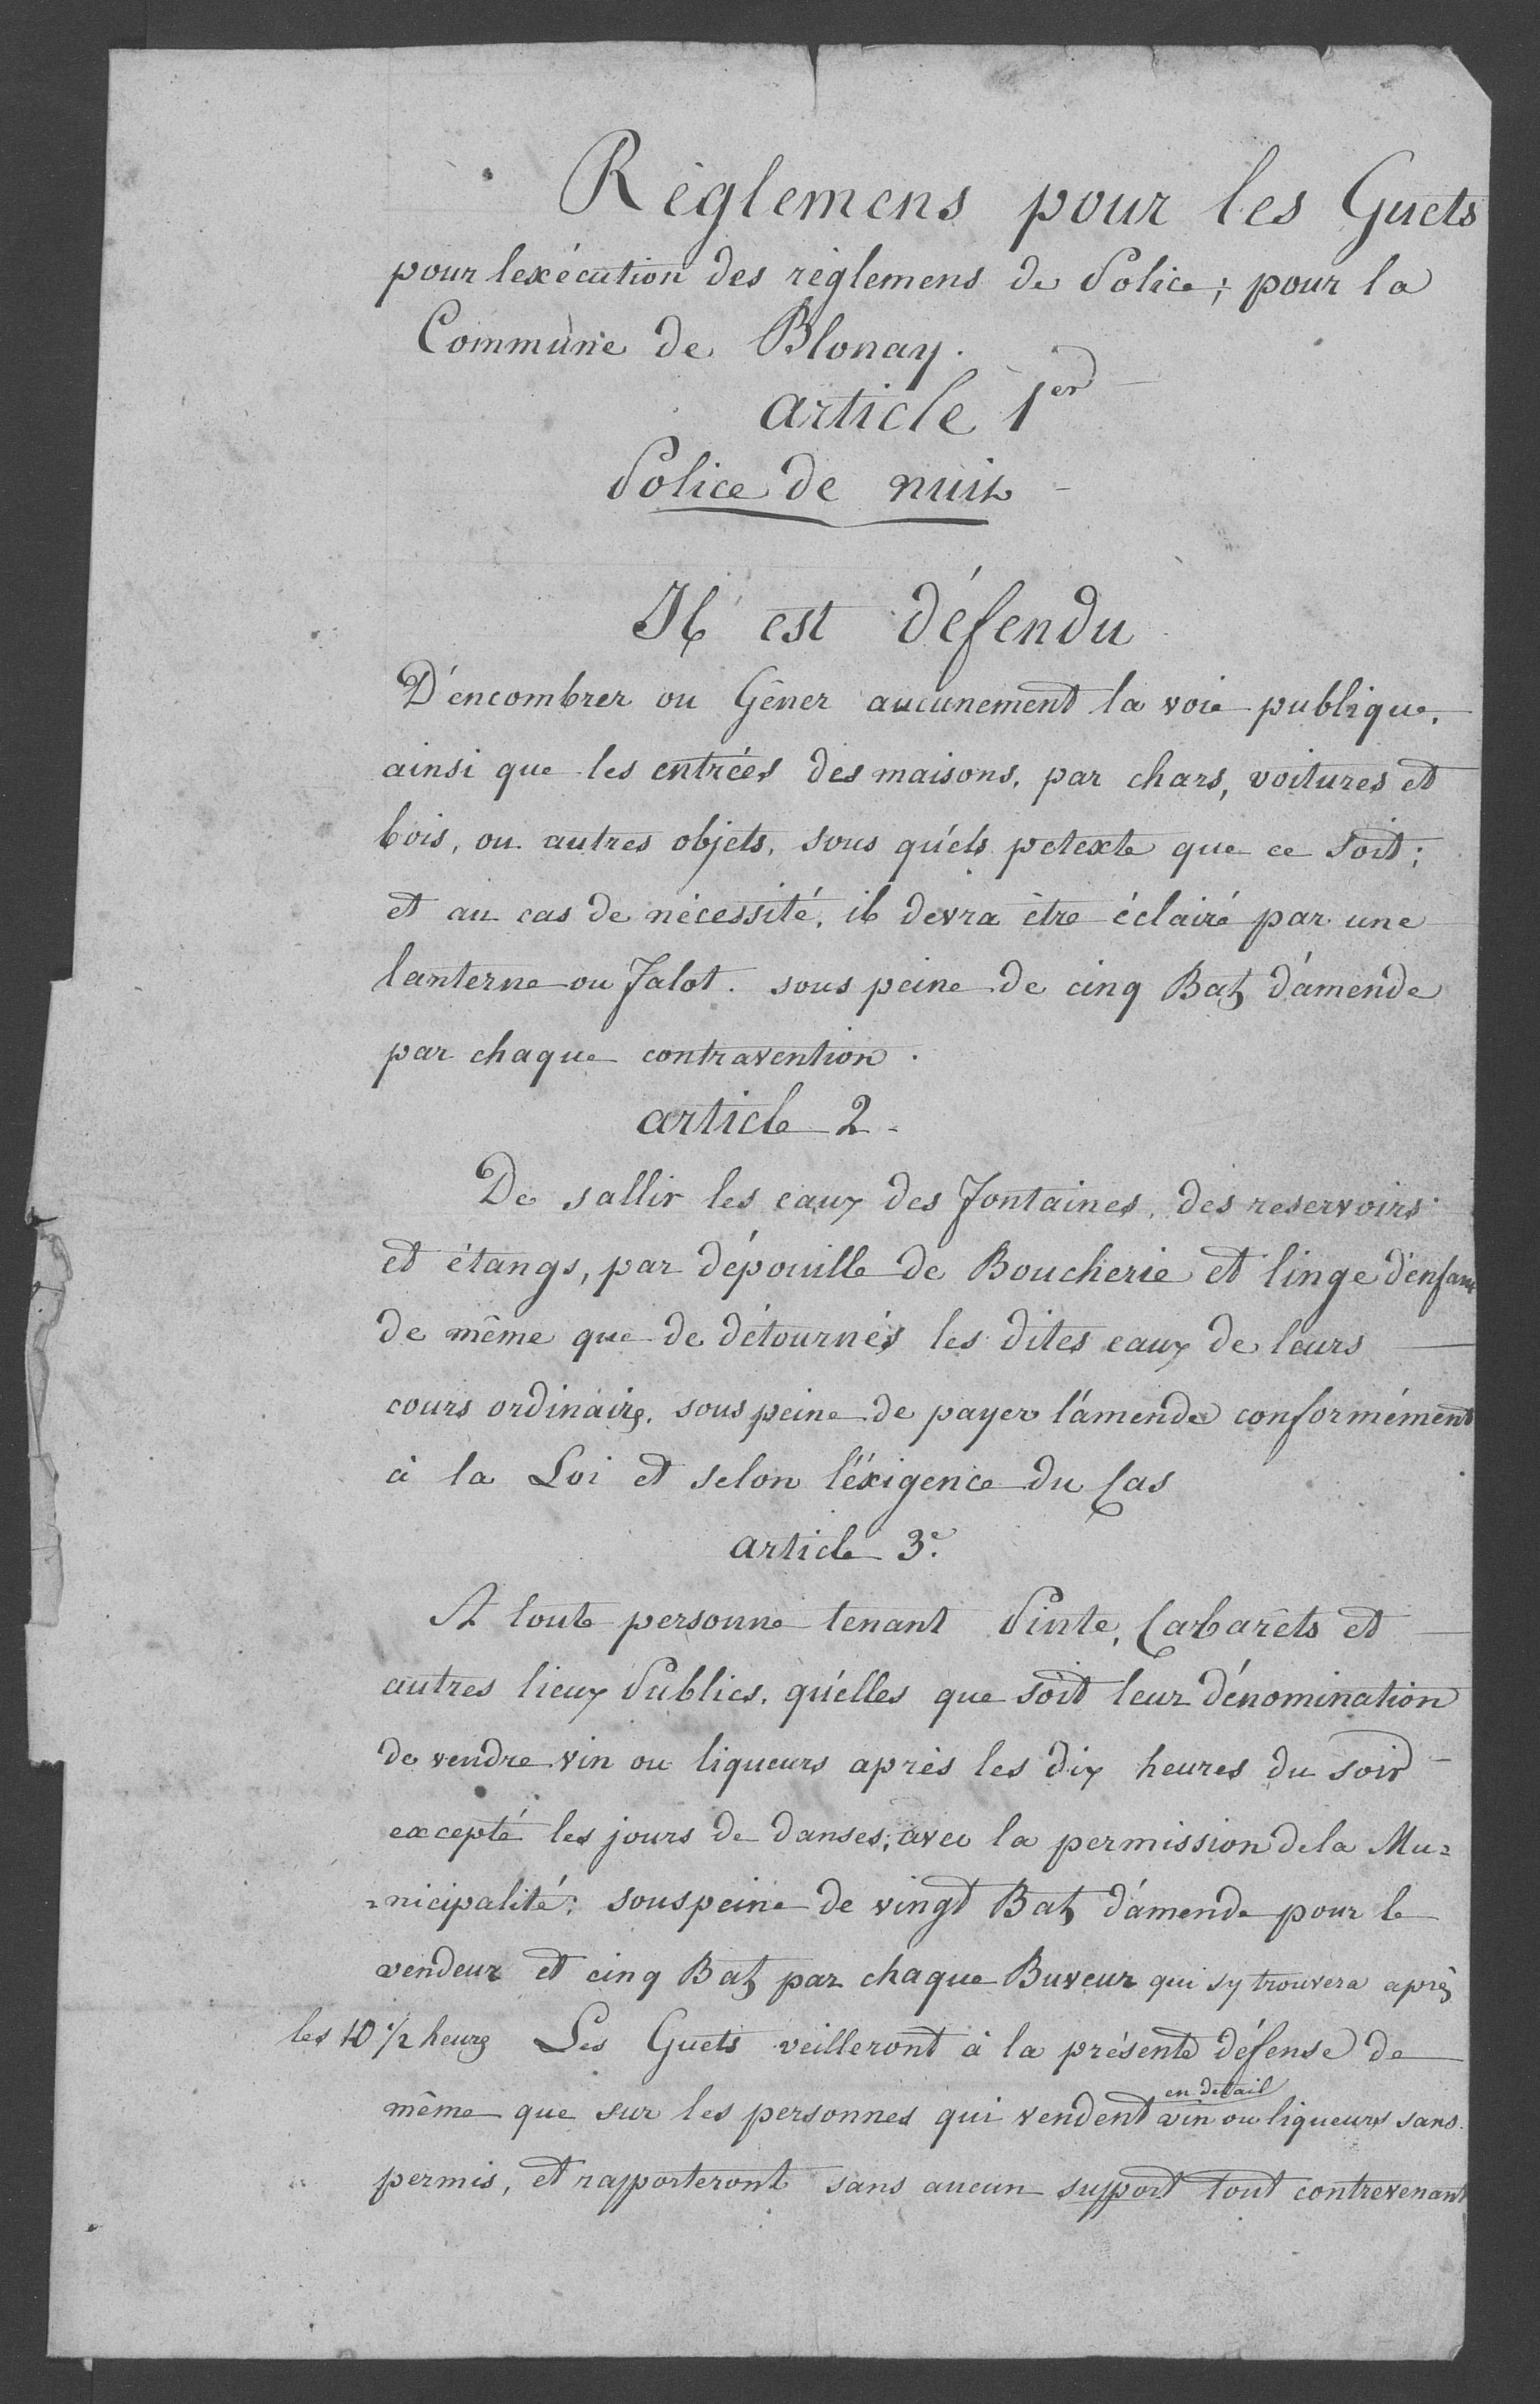 Règlemens pour les Guets
pour lexécution des règlemens de Police; pour la
Commune de Blonay.
article 1er
Police de nuit
Il est défendu
D'encombrer ou Gêner aucunement la voie publique,
ainsi que les entrées des maisons, par chars, voitures et
bois, ou autres objets, sous qu'els petexte que ce soit;
et au cas de nécessité, il devra être éclairé par une
lanterne ou falot. sous peine de cinq Batz d'amende
par chaque contravention.
article 2.
De sallir les eaux des fontaines, des reservoirs
et étangs, par dépouille de Boucherie et linge d'enfant
de même que de détournés les dites eaux de leurs
cours ordinaire, sous peine de payer l'amende conformément
à la Loi et selon l'éxigence du Cas
article 3e
A toute personne tenant Pinte, Cabarêts et
autres lieux Publics, qu'elles que soit leur dénomination
de vendre vin ou liqueurs après les dix heures du soir
excepté les jours de danses, avec la permission de la Mu=
=nicipalité: sous peine de vingt Batz d'amende pour le
vendeur et cinq Batz par chaque Buveur qui sy trouvera après
les 10 1/2 heures Les Guets veilleront à la présente défense de
même que sur les personnes qui vendent en detail vin ou liqueurs sans
permis, et rapporteront sans aucun support tout contrevenant